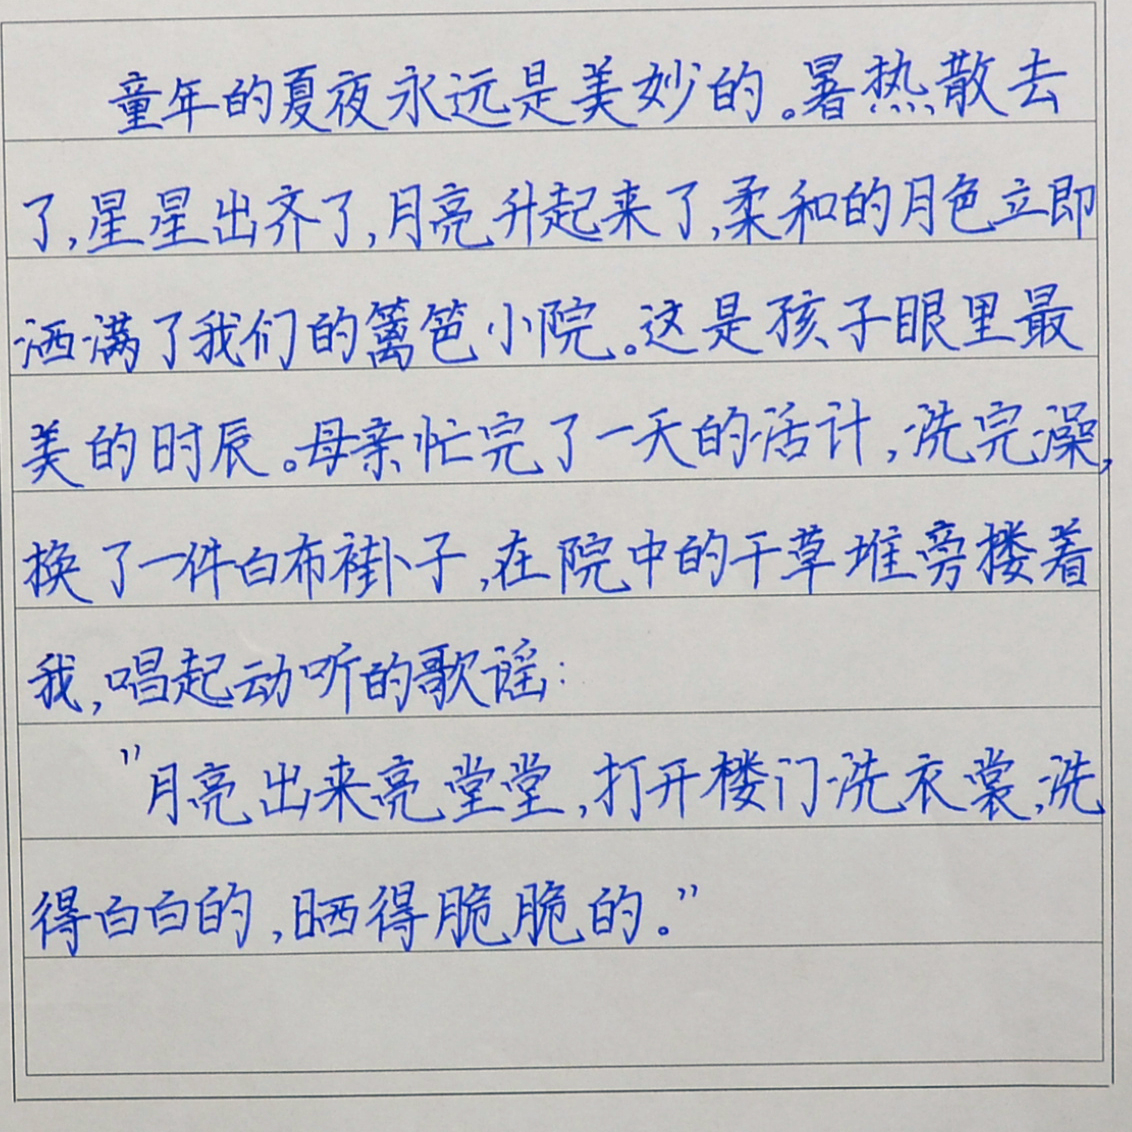 童年的夏夜永远是美妙的。暑热散去
了,星星出齐了,月亮升起来了,柔和的月色立即
洒满了我们的篱笆小院。这是孩子眼里最
美的时辰。母亲忙完了一天的活计,洗完澡,
换了一件白布褂子,在院中的干草堆旁搂着
我,唱起动听的歌谣:
"月亮出来亮堂堂,打开楼门洗衣裳,洗
得白白的,晒得脆脆的。"